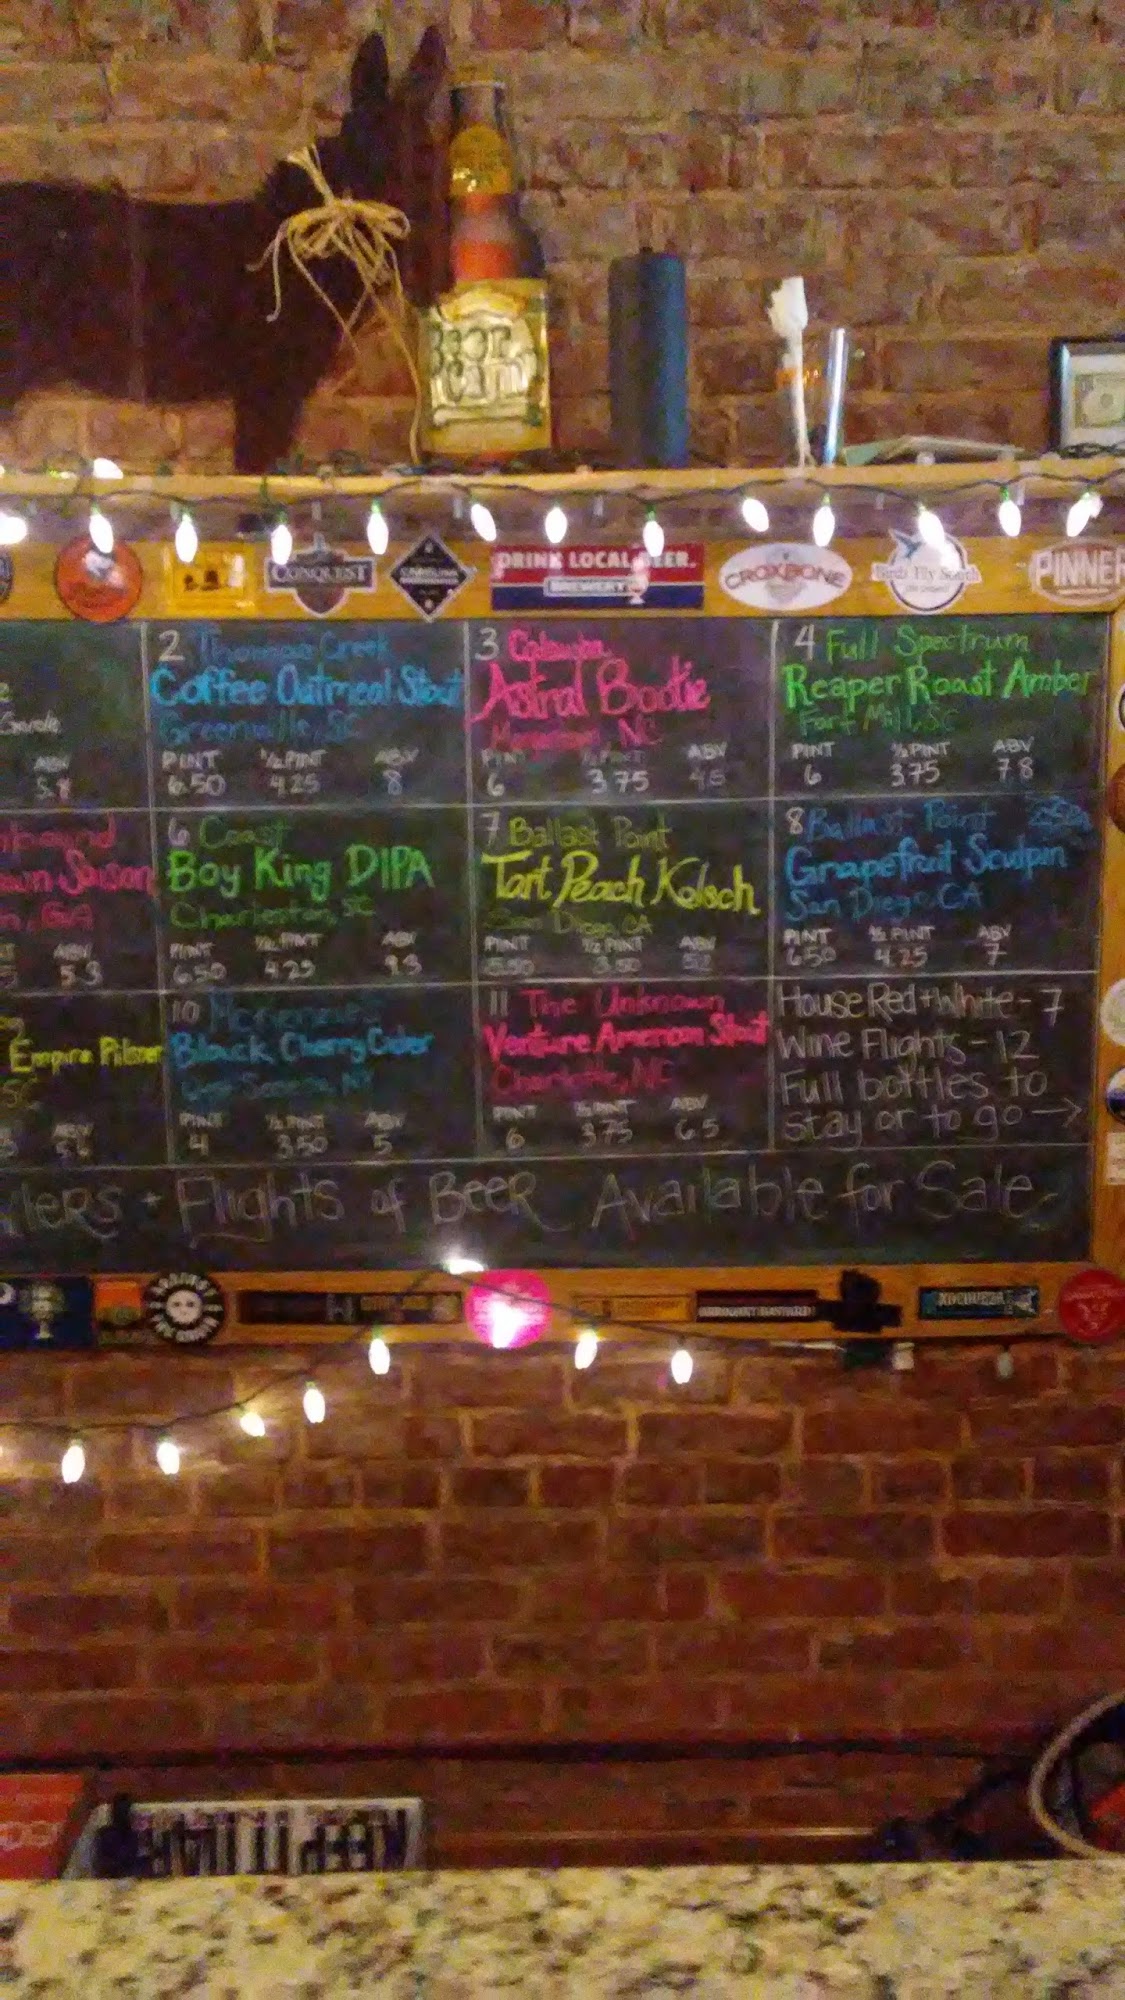 Beer
Camp
CONQUEST
CAROLINA
DRINK LOCAL BEER.
BREWERY
CROXBONE
Birds Fly South
PINNER
2 Thomas Creek
Coffee Oatmeal Stout
Greenville, SC
PINT 1/2 PINT ABV
6.50 4.25 8
3 Catawba
Astral Bootie
Morganton, NC
PINT 1/2 PINT ABV
6 3.75 4.5
4 Full Spectrum
Reaper Roast Amber
Fort Mill, SC
PINT 1/2 PINT ABV
6 3.75 7.8
ABV
5.8
Saison
GA
ABV
5.3
6 Coast
Boy King DIPA
Charleston, SC
PINT 1/2 PINT ABV
6.50 4.25 9.3
7 Ballast Point
Tart Peach Kolsch
San Diego, CA
PINT 1/2 PINT ABV
5.50 3.50 5.2
8 Ballast Point
Grapefruit Sculpin
San Diego, CA
PINT 1/2 PINT ABV
6.50 4.25 7
Empire Pilsner
SC
ABV
5.6
10 McKenzie's
Black Cherry Cider
West Seneca, NY
PINT 1/2 PINT ABV
4 3.50 5
11 The Unknown
Venture American Stout
Charlotte, NC
PINT 1/2 PINT ABV
6 3.75 6.5
House Red + White - 7
Wine Flights - 12
Full bottles to
stay or to go →
lers + Flights of Beer Available for Sale
XOCOVEZA
KEEP IT